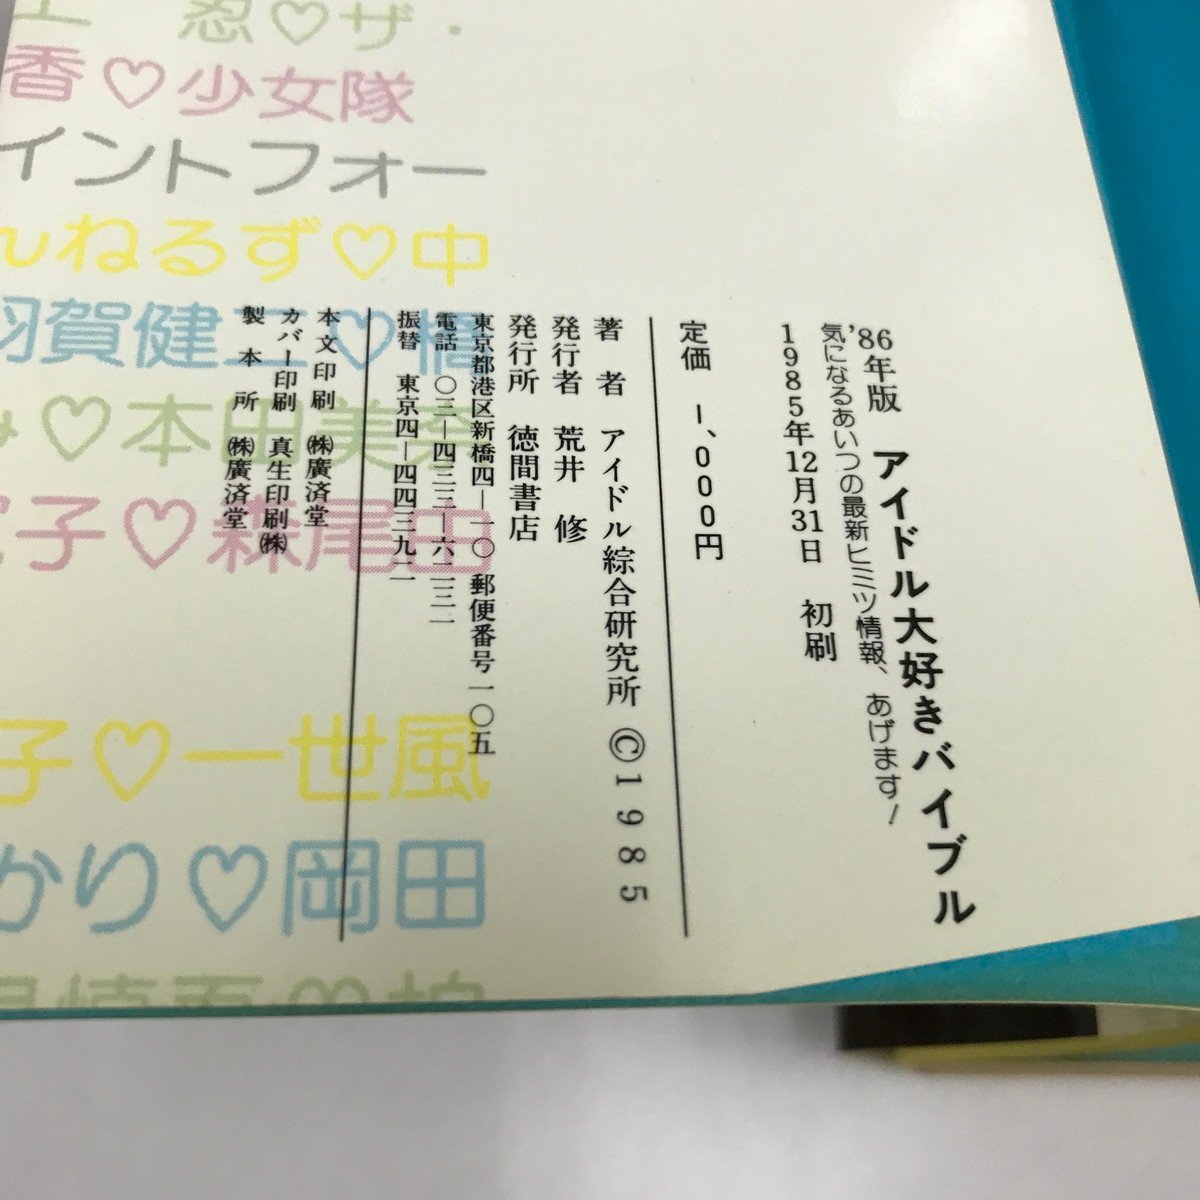 '86年版 アイドル大好きバイブル
気になるあいつの最新ヒミツ情報、あげます!
1985年12月31日 初刷
定価 一、000円
著者 アイドル綜合研究所 ©1985
発行者 荒井 修
発行所 徳間書店
東京都港区新橋四―一〇 郵便番号一〇五
電話 〇三―四三三―六二三一
振替 東京四―四四三九二
本文印刷 ㈱廣済堂
カバー印刷 真生印刷㈱
製本所 ㈱廣済堂
忍♡ザ・
香♡少女隊
イントフォー
んねるず♡中
羽賀健二♡
み♡本田美奈
子♡森尾由
子♡一世風
かり♡岡田